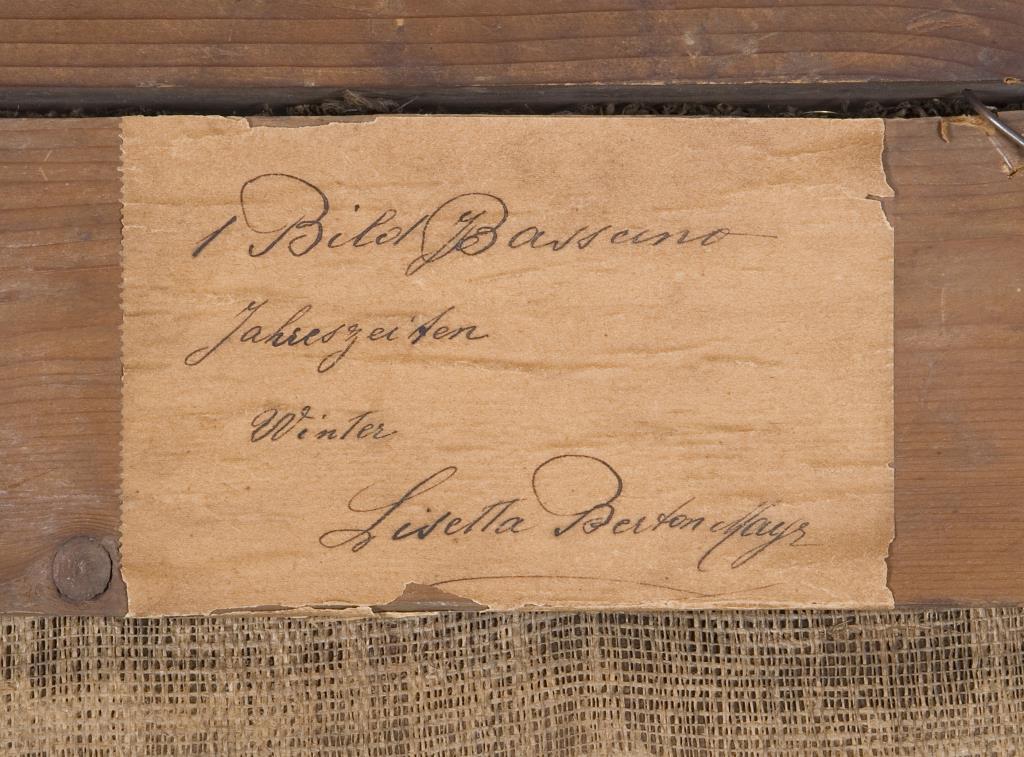 1 Bild Bassano
Jahreszeiten
Winter
Lisetta Berton Mayr